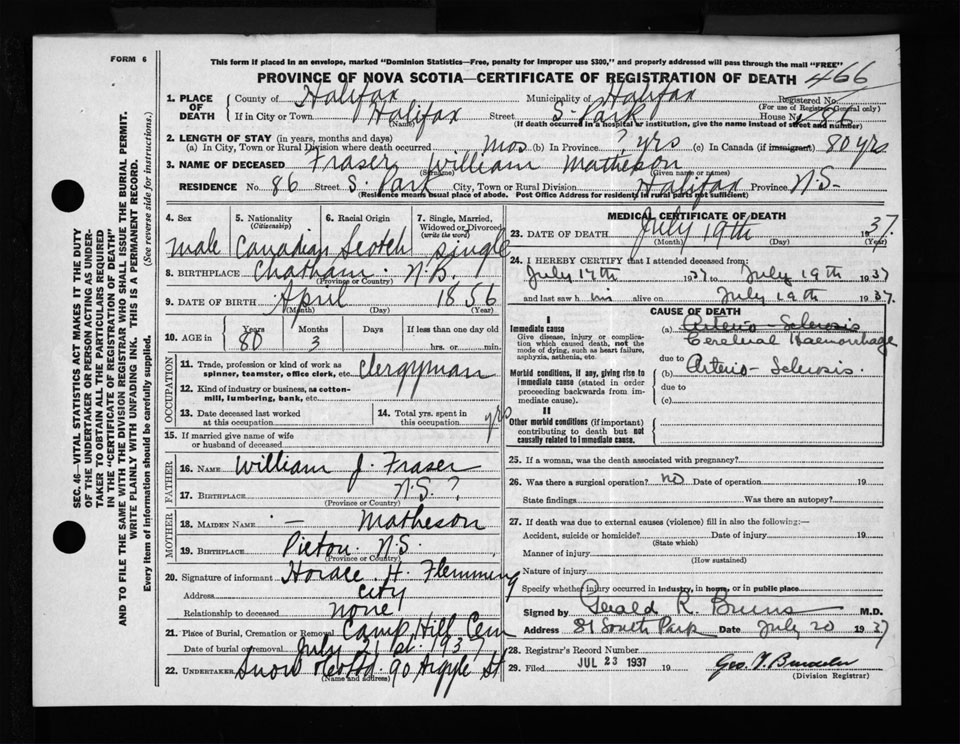 FORM 6
This form if placed in an envelope, marked "Dominion Statistics—Free, penalty for improper use $300," and properly addressed will pass through the mail "FREE"
PROVINCE OF NOVA SCOTIA—CERTIFICATE OF REGISTRATION OF DEATH 466
1. PLACE OF DEATH County of Halifax Municipality of Halifax Registered No.
(For use of Registrar General only)
If in City or Town Halifax Street S. Park House No. 86
(Name) (If death occurred in a hospital or institution, give the name instead of street and number)
2. LENGTH OF STAY (in years, months and days)
(a) In City, Town or Rural Division where death occurred mos (b) In Province ? yrs (c) In Canada (if immigrant) 80 yrs
3. NAME OF DECEASED Fraser William Matheson
(Surname) (Given name or names)
RESIDENCE No. 86 Street S. Park City, Town or Rural Division Halifax Province N.S.
(Residence means usual place of abode. Post Office Address for residents in rural parts not sufficient)
4. Sex 5. Nationality (Citizenship) 6. Racial Origin 7. Single, Married, Widowed or Divorced (write the word)
male Canadian Scotch single
8. BIRTHPLACE Chatham. N.B.
(Province or Country)
9. DATE OF BIRTH April 1856
(Month) (Day) (Year)
10. AGE in Years Months Days If less than one day old
80 3 hrs. or min.
OCCUPATION
11. Trade, profession or kind of work as spinner, teamster, office clerk, etc. clergyman
12. Kind of industry or business, as cotton-mill, lumbering, bank, etc.
13. Date deceased last worked at this occupation 14. Total yrs. spent in this occupation yrs
15. If married give name of wife or husband of deceased
FATHER
16. NAME William J. Fraser
17. BIRTHPLACE N.S. ?
(Province or Country)
MOTHER
18. MAIDEN NAME — Matheson
19. BIRTHPLACE Pictou N.S.
(Province or Country)
20. Signature of informant Horace H. Flemming
Address City
Relationship to deceased none
21. Place of Burial, Cremation or Removal Camp Hill Cem
Date of burial or removal July 21st. 1937
22. UNDERTAKER Snow & Co Ltd. 90 Argyle St
(Name and address)
MEDICAL CERTIFICATE OF DEATH
23. DATE OF DEATH July 19th 1937.
(Month) (Day) (Year)
24. I HEREBY CERTIFY that I attended deceased from:
July 17th 1937 to July 19th 1937
and last saw h im alive on July 19th 1937.
CAUSE OF DEATH
I
Immediate cause (a) Arterio-Sclerosis
Give disease, injury or complication which caused death, not the mode of dying, such as heart failure, asphyxia, asthenia, etc. Cerebral Haemorrhage
due to
Morbid conditions, if any, giving rise to immediate cause (stated in order proceeding backwards from immediate cause). (b) Arterio-Sclerosis.
due to
(c)
II
Other morbid conditions (if important) contributing to death but not causally related to immediate cause.
25. If a woman, was the death associated with pregnancy?
26. Was there a surgical operation? no Date of operation 19
State findings Was there an autopsy?
27. If death was due to external causes (violence) fill in also the following:—
Accident, suicide or homicide? Date of injury 19
(State which)
Manner of injury
(How sustained)
Nature of injury
Specify whether injury occurred in industry, in home, or in public place
Signed by Gerald R. Burns M.D.
Address 81 South Park Date July 20 1937
28. Registrar's Record Number
29. Filed JUL 23 1937 19
(Division Registrar)
SEC. 46—VITAL STATISTICS ACT MAKES IT THE DUTY
OF THE UNDERTAKER OR PERSON ACTING AS UNDER-
TAKER TO OBTAIN ALL THE PARTICULARS REQUIRED
IN THE "CERTIFICATE OF REGISTRATION OF DEATH"
AND TO FILE THE SAME WITH THE DIVISION REGISTRAR WHO SHALL ISSUE THE BURIAL PERMIT.
WRITE PLAINLY WITH UNFADING INK. THIS IS A PERMANENT RECORD.
Every item of information should be carefully supplied. (See reverse side for instructions.)